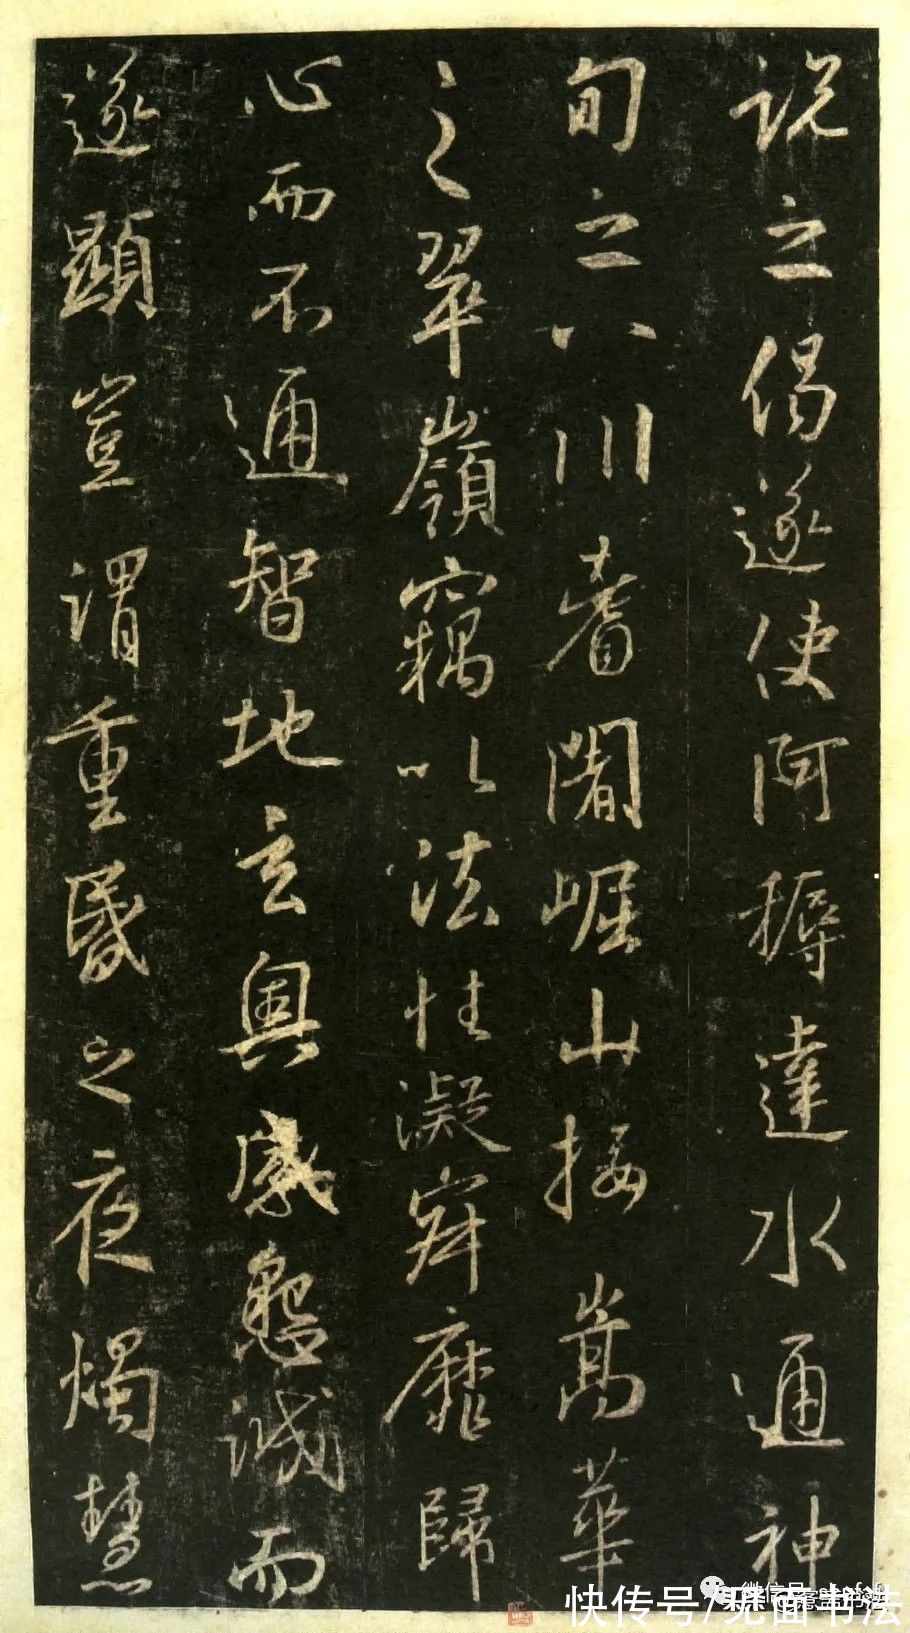 說之偈遂使阿耨達水通神
甸之八川耆闍崛山接嵩華
之翠嶺竊以法性凝寂靡歸
心而不通智地玄奧感懇誠而
遂顯豈謂重昏之夜燭慧
快传号/见面书法